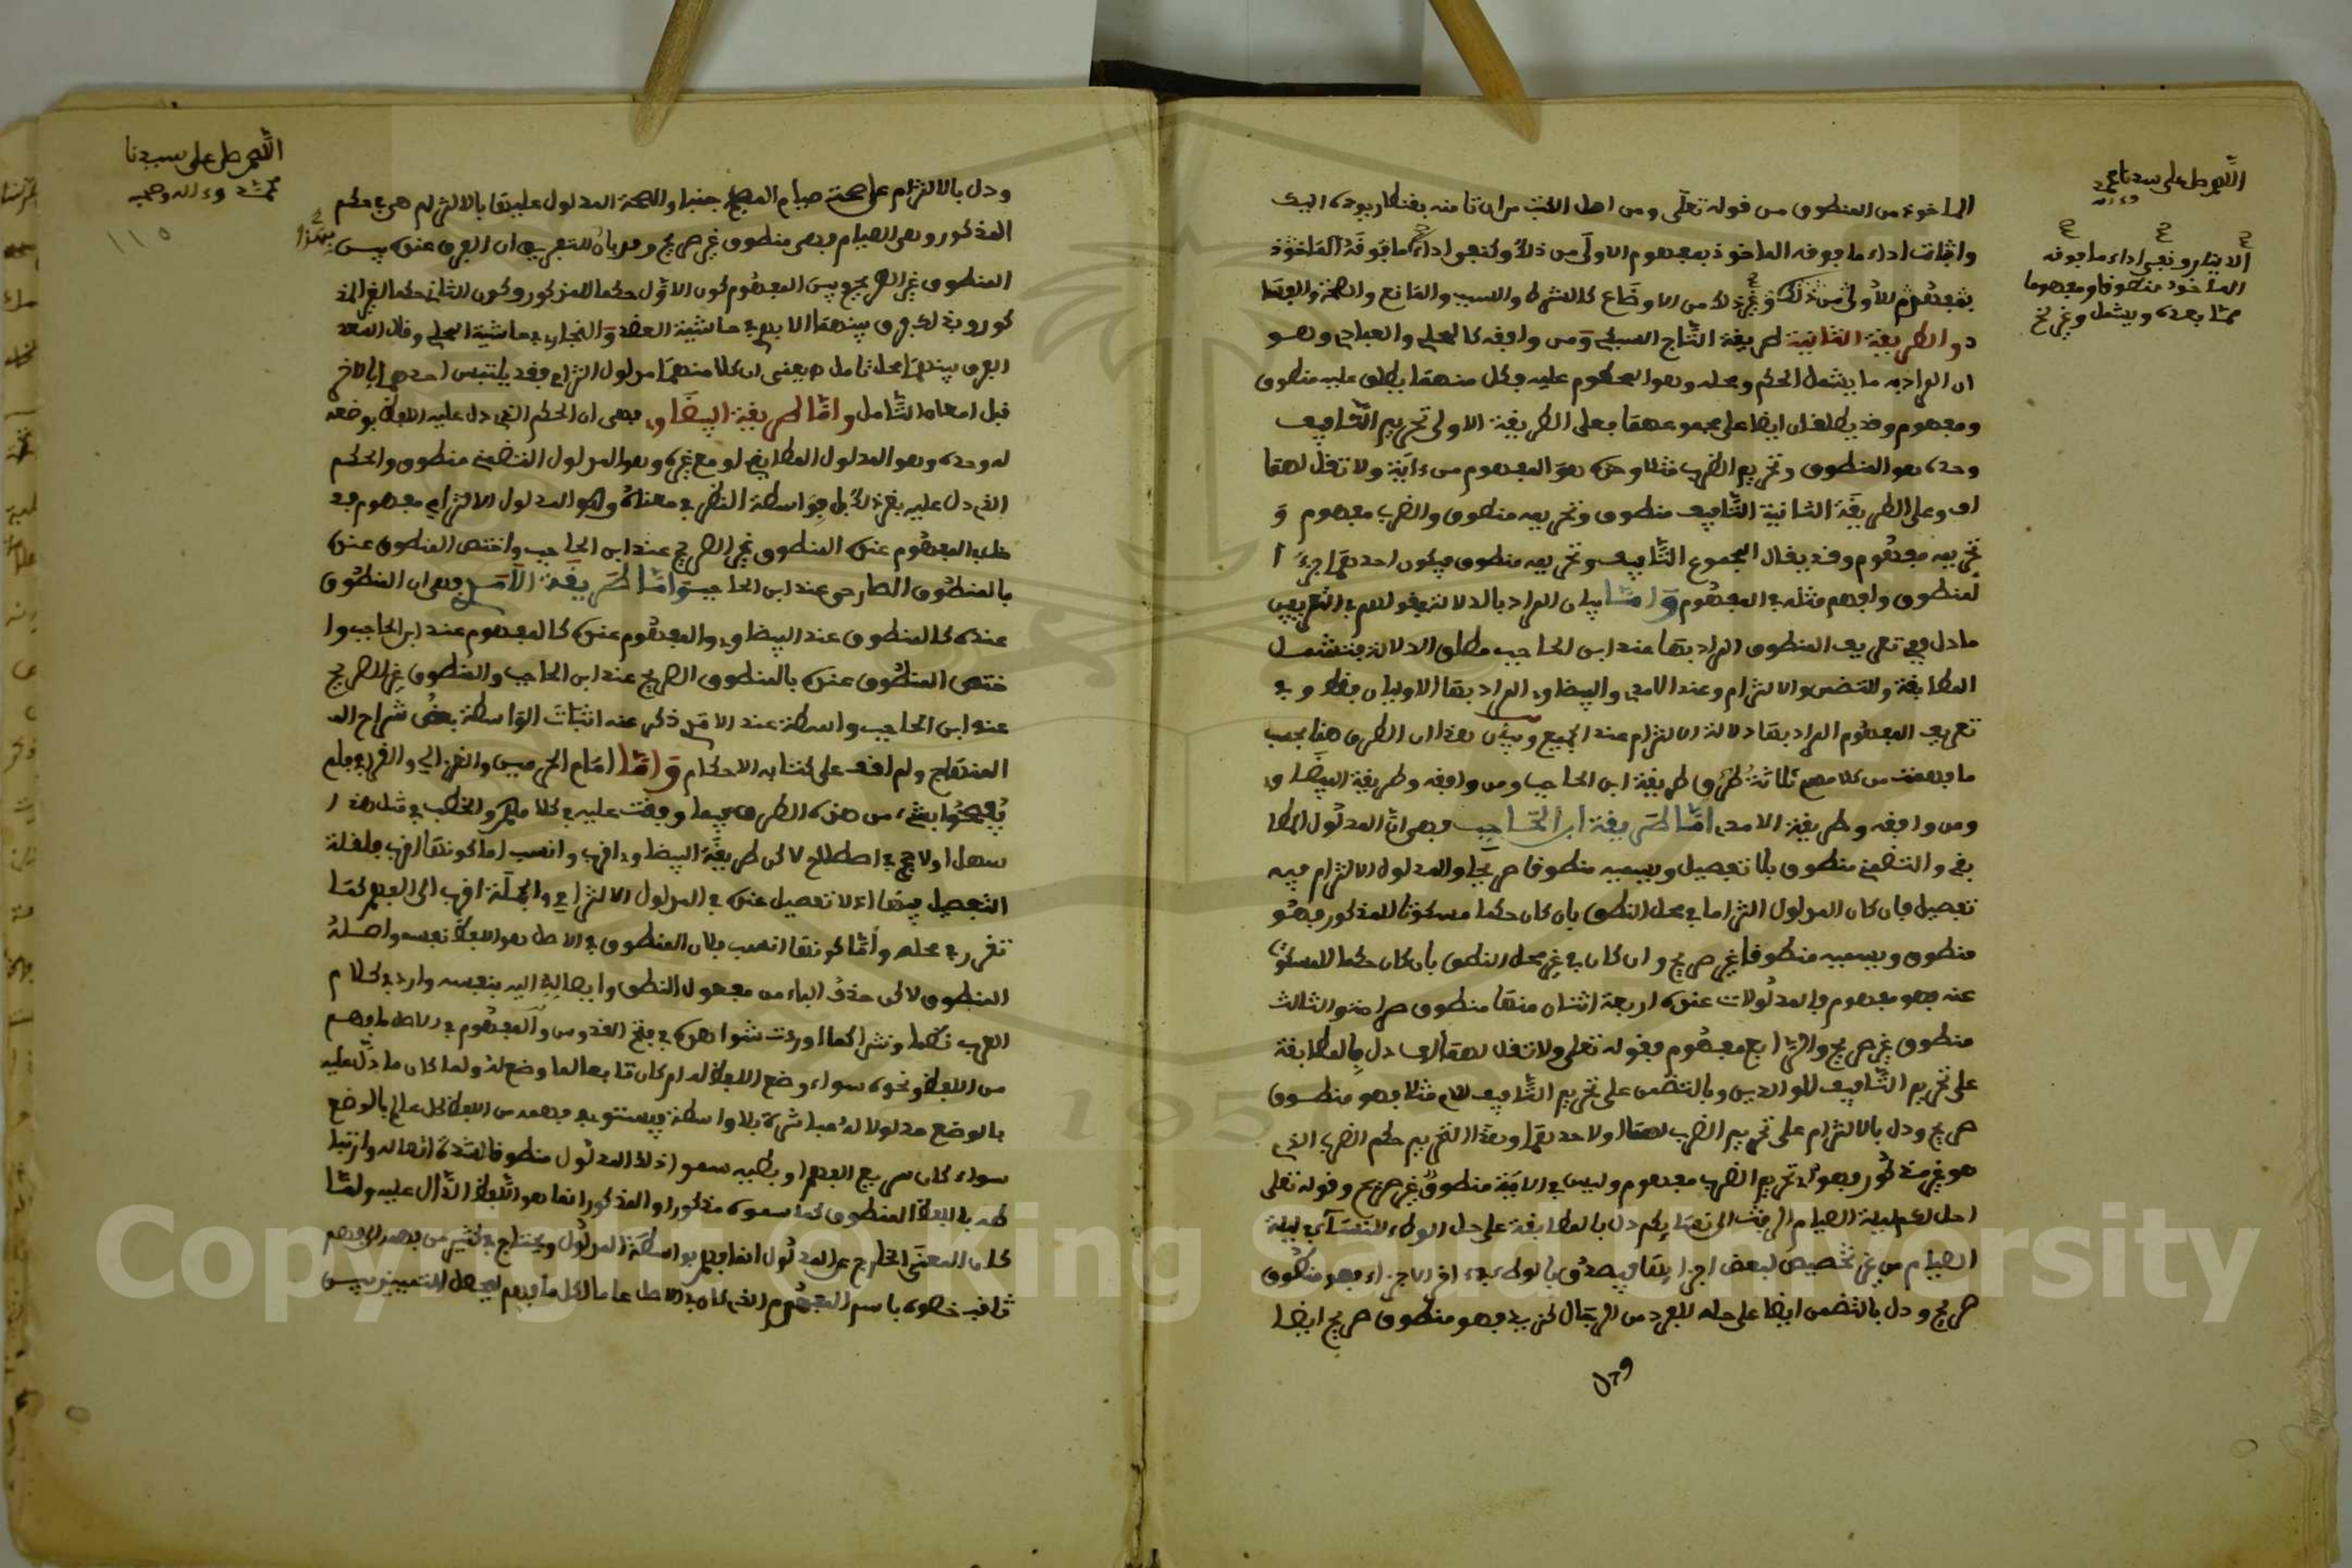 اللهم صل على سيدنا محمد
وءاله
الماخوذ من المنطوق من قوله تعلى ومن اهل الكتب من ان تامنه بقنطار يوده اليك
واثبات اداء ما فوقه الماخوذ بمفهوم الاولى من ذلك وكنفي اداء ما فوقه الماخوذ
بمفهوم الاولى من ذلك وغير ذلك من الاوضاع كالشرط والسبب والمانع والصحة والفسا
د والطريقة الثانية طريقة التاج السبكي ومن وافقه كالمحلي والعبادي وهو
ان المراد به ما يشمل الحكم ومحله وهو المحكوم عليه فكل منهما يطلق عليه منطوق
ومفهوم وقد يطلقان ايضا على مجموعهما فعلى الطريقة الاولى تحريم التافيف
وحده هو المنطوق وتحريم الضرب مثلا وحده هو المفهوم من ءاية ولا تقل لهما
اف وعلى الطريقة الثانية التافيف منطوق وتحريمه منطوق والضرب مفهوم و
تحريمه مفهوم وقد يقال المجموع التافيف وتحريمه منطوق فيكون احدهما جزء ا
لمنطوق وافهم مثله في المفهوم واما بيان المراد بالدلالة في قولهم في التعريفين
ما دل ففي تعريف المنطوق المراد بها عند ابن الحاجب مطلق الدلالة فتشمل
المطابقة والتضمن والالتزام وعند الامدي والبيضاوي المراد بها الاوليان فقط وفي
تعريف المفهوم المراد بها دلالة الالتزام عند الجميع وبيان هذا ان الطرق هنا بحسب
ما فهمت من كلامهم ثلاثة طرق طريقة ابن الحاجب ومن وافقه وطريقة البيضاوي
ومن وافقه وطريقة الامدي اما طريقة ابن الحاجب فهي ان المدلول المطا
بقي والتضمني منطوق بلا تفصيل ويسميه منطوقا صريحا والمدلول الالتزام فيه
تفصيل فان كان المدلول التزاما في محل النطق بان كان حكما مسكوتا للمذكور فهو
منطوق ويسميه منطوقا غير صريح وان كان في غير محل النطق بان كان حكما للمسكوت
عنه فهو مفهوم فالمدلولات عنده اربعة اثنان منها منطوق صراحة والثالث
منطوق غير صريح والرابع مفهوم فقوله تعلى ولا تقل لهما اف دل بالمطابقة
على تحريم التافيف للوالدين وبالتضمن على تحريم التافيف للام مثلا فهو منطوق
صريح ودل بالالتزام على تحريم الضرب لهما او لاحدهما وهذا التحريم حكم الضرب الذي
هو غير مذكور فهو اي تحريم الضرب مفهوم وليس في الاية منطوق غير صريح وقوله تعلى
احل لكم ليلة الصيام الرفث الى نسائكم دل بالمطابقة على حل الوطء للنساء في ليلة
الصيام من غير تخصيص لبعض اجزائها فيصدق بالوطء في ءاخر الاجزاء فهو منطوق
صريح ودل بالتضمن ايضا على حله للفرد من الرجال كزيد فهو منطوق صريح ايضا
ودل
الدينار ونفي اداء ما فوقه
الماخوذ منطوقا ومفهوما
مما بعده ويشمل وغير
اللهم صل على سيدنا
محمد وءاله وصحبه
١١٥
ودل بالالتزام على صحة صيام المصبح جنبا والصحة المدلول عليها بالالتزام هي حكم
المذكور وهي الصيام فهي منطوق غير صريح وقد بان للتعريف ان الفرق عنده بين
المنطوق غير الصريح وبين المفهوم كون الاول حكما للمذكور وكون الثاني حكما لغير المذ
كور وبذلك فرق بينهما الابهري في حاشية العضد والنجاري في حاشية المحلي وقال السعد
الفرق بينهما محل تامل ه يعني ان كلا منهما مدلول التزامي فقد يلتبس احدهما بالاخر
قبل امعان التامل واما طريقة البيضاوي فهي ان الحكم الذي دل عليه اللفظ بوضعه
له وحده وهو المدلول المطابقي او مع غيره وهو المدلول التضمني منطوق والحكم
الذي دل عليه بغير ذلك بل بواسطة النظر في معناه وهو المدلول الالتزامي مفهوم فد
خل في المفهوم عنده المنطوق غير الصريح عند ابن الحاجب واختص المنطوق عنده
بالمنطوق الصارح عند ابن الحاجب واما طريقة الامدي فهي ان المنطوق
عنده كالمنطوق عند البيضاوي والمفهوم عنده كالمفهوم عند ابن الحاجب وا
ختص المنطوق عنده بالمنطوق الصريح عند ابن الحاجب والمنطوق غير الصريح
عند ابن الحاجب واسطة عند الامدي ذكر عنه اثبات الواسطة بعض شراح
المنهاج ولم اقف على كتابه الاحكام واما امام الحرمين والغزالي والقرافي فلم
يفصحوا بشيء من هذه الطرق فيما وقفت عليه في كلامهم والخطب في مثل هذا
سهل اولا حجر في اصطلاح لاكن طريقة البيضاوي اقرب وانسب اما كونها اقرب فلقلة
التفصيل فيها اذ لا تفصيل عنده في المدلول الالتزامي والجملة اقرب الى الفهم كما
تقرر في محله واما كونها انسب فلان المنطوق في الاصل هو اللفظ نفسه واصله
المنطوق لاكن حذف الباء من مفعول النطق وايصاله اليه بنفسه وارد في كلام
العرب نظما ونثرا كما اوردت شواهده في فتح القدوس والمفهوم في الاصل ما فهم
من اللفظ ونحوه سواء وضع اللفظ له ام كان تابعا لما وضع له ولما كان ما دل عليه
بالوضع مدلولا له مباشرة بلا واسطة فيستوي في فهمه من اللفظ كل عالم بالوضع
سواء كان سريع الفهم او بطيئه سموا ذلك المدلول منطوقا لشدة اتصاله وارتبا
طه باللفظ المنطوق كما سموه مذكورا والمذكور انما هو اللفظ الدال عليه ولما
كان المعنى الخارج عن المدلول انما فهم بواسطة المدلول ويحتاج في كثير من فهمه الى فهم
ثاقب خصوه باسم المفهوم الذي كان في الاصل عاما لكل ما فهم ليحصل التمييز بين
Copyright © King Saud University
195